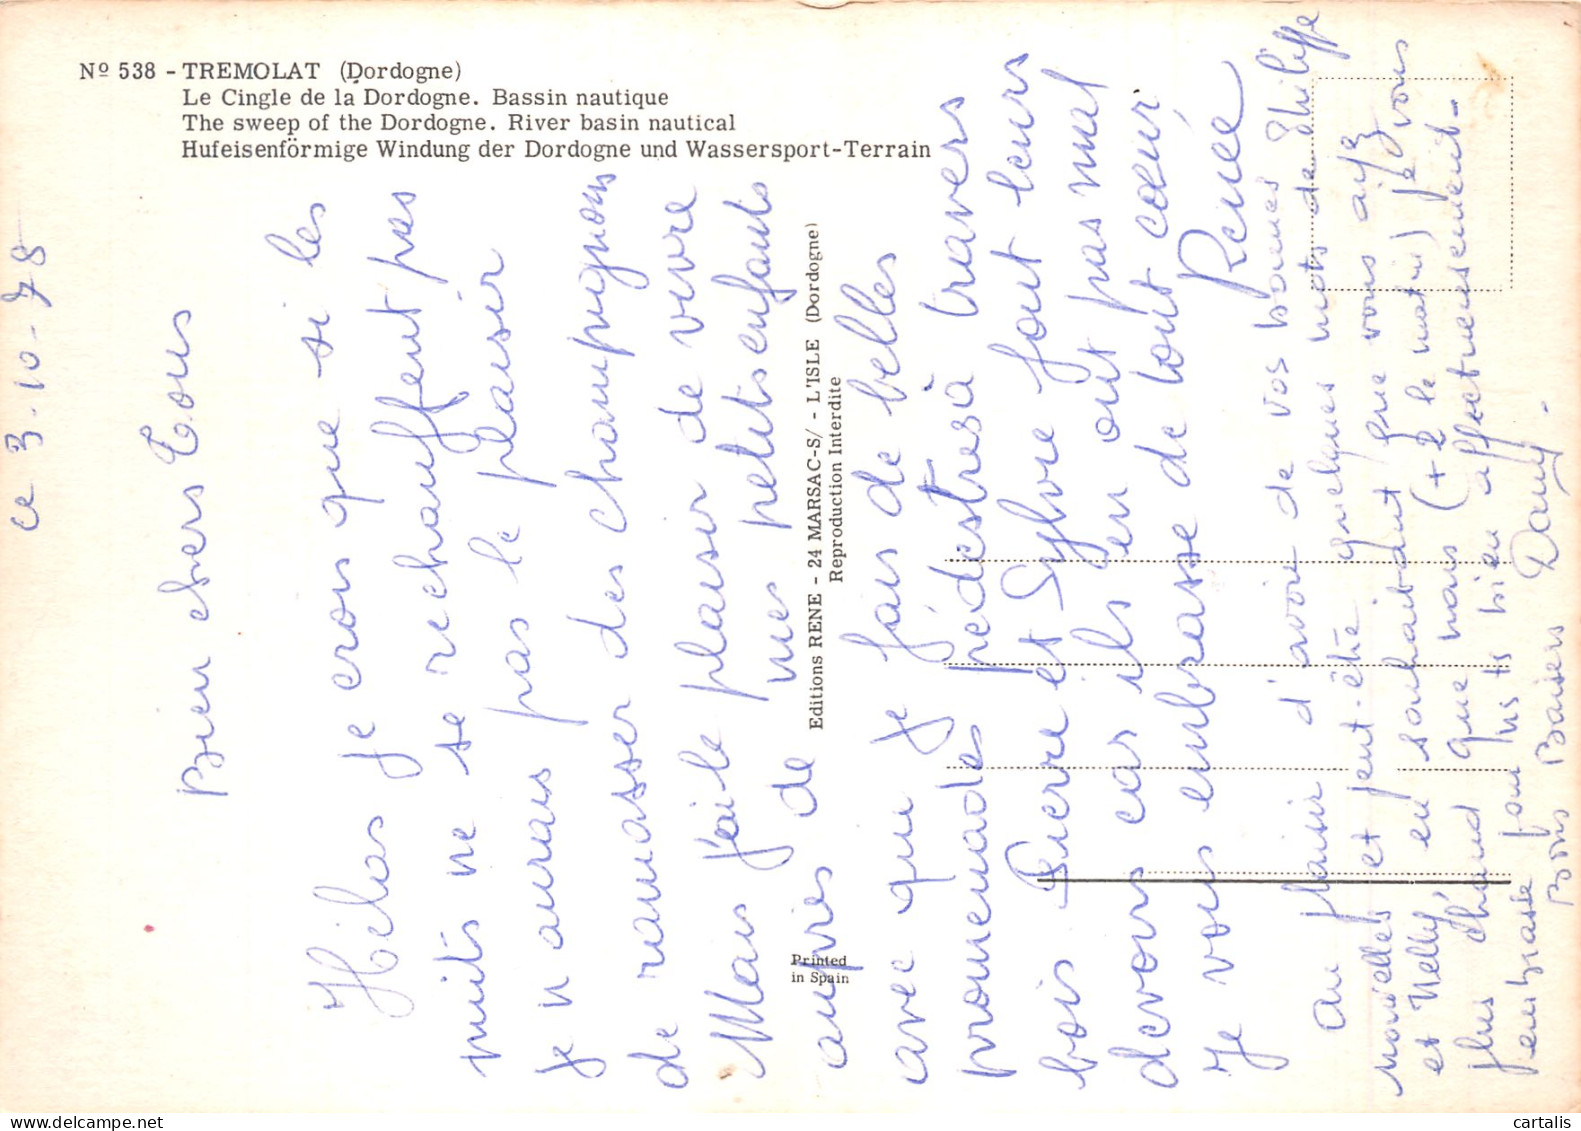 Nº 538 - TREMOLAT (Dordogne)
Le Cingle de la Dordogne. Bassin nautique
The sweep of the Dordogne. River basin nautical
Hufeisenförmige Windung der Dordogne und Wassersport-Terrain
Editions RENE - 24 MARSAC-S/ - L'ISLE (Dordogne)
Reproduction Interdite
Printed
in Spain
ce 3-10-78
Bien chers Tous
Hélas je crois que si les
nuits ne se rechauffent pas
je n'aurais pas le plaisir
de ramasser des champignons
Mais j'ai le plaisir de vivre
auprès de mes petits enfants
avec qui je fais de belles
promenades pédestres à travers
bois Pierre et Sylvie font leurs
devoirs car ils en ont pas mal
Je vous embrasse de tout cœur,
Renée
Au plaisir d'avoir de vos bonnes
nouvelles et peut-être quelques mots de Philippe
et Nelly, en souhaitant que vous ayez
plus chaud que nous (+ 2 le matin) je vous
embrasse tous bien affectueusement -
Bons Baisers Dany.
cartalis